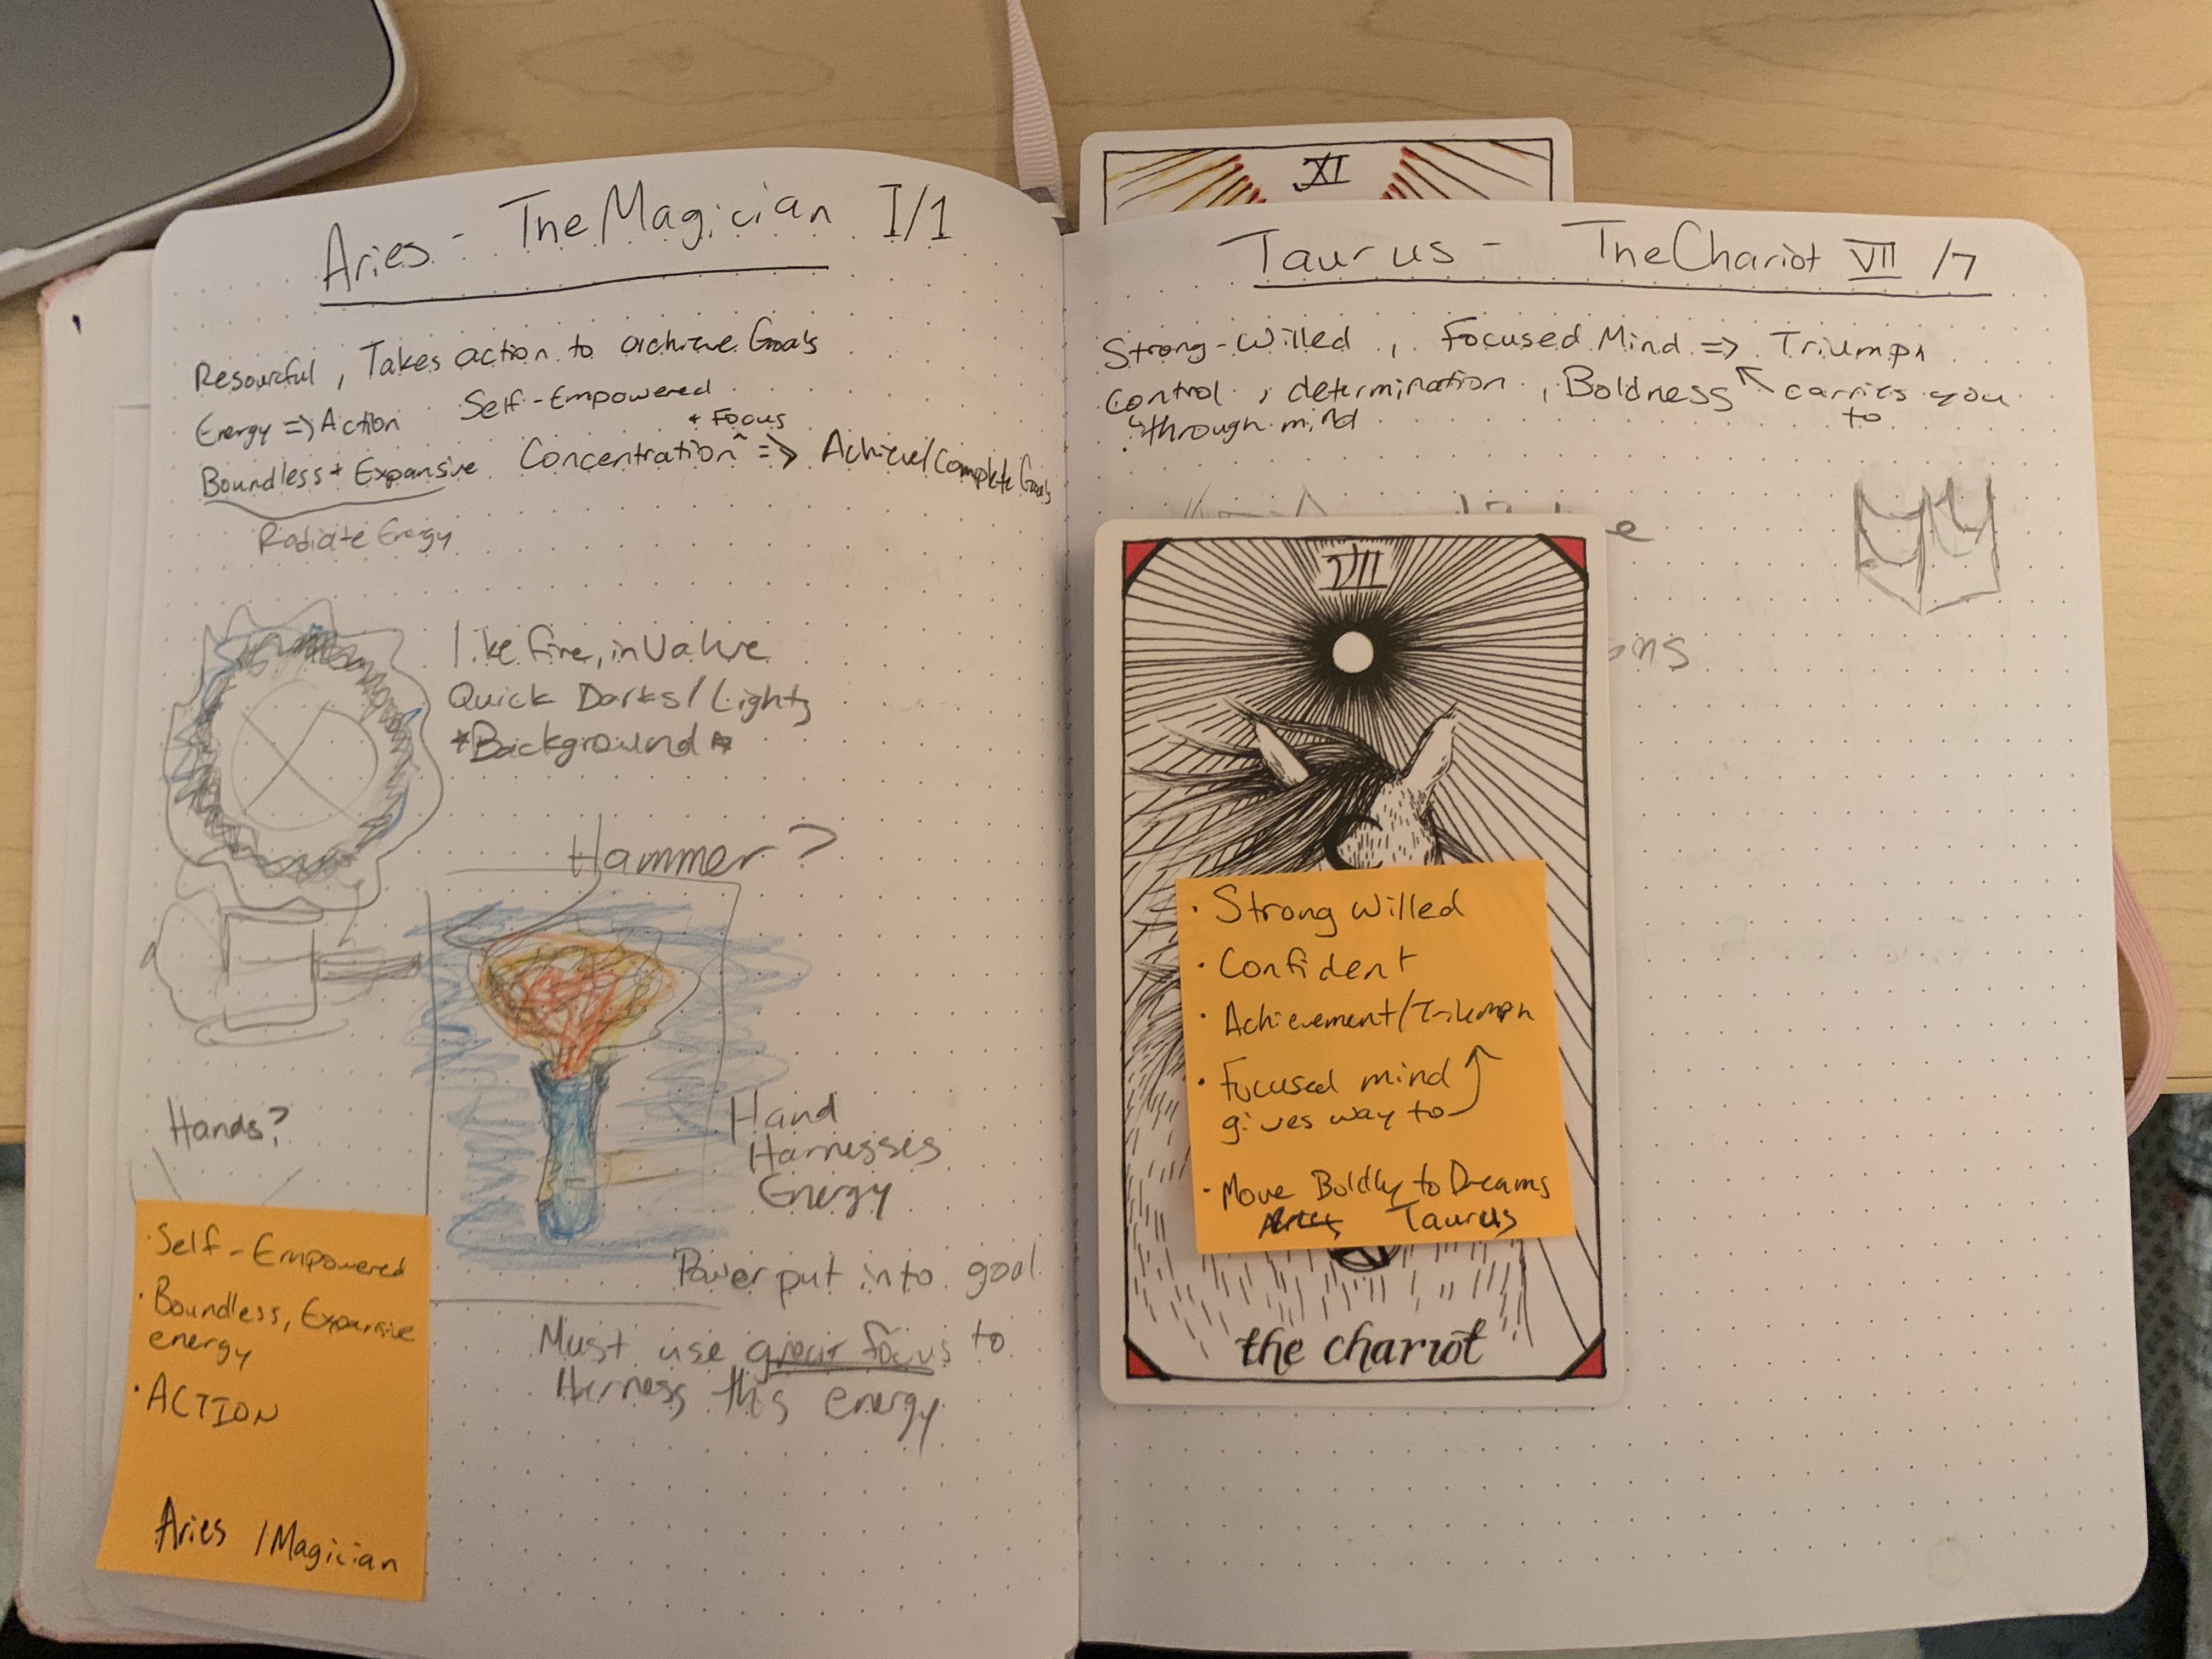 Aries - The Magician I/1
Resourcful, Takes action to achieve Goals
Energy => Action Self-Empowered
+ Focus
Boundless + Expansive Concentration ^ => Achieve/Complete Goals
Radiate Energy
like fire, in Value
Quick Darks/Lights
*Background*
Hammer?
Hands?
Hand
Harnesses
Energy
Power put into goal
Must use great focus to
Harness this energy
· Self-Empowered
· Boundless, Expansive
energy
· ACTION
Aries / Magician
XI
Taurus - The Chariot VII /7
Strong-Willed, Focused Mind => Triumph
Control, determination, Boldness carries you
through mind to
VII
· Strong Willed
· Confident
· Achievement/Triumph
· Focused mind
gives way to
· Move Boldly to Dreams
Aries Taurus
the chariot